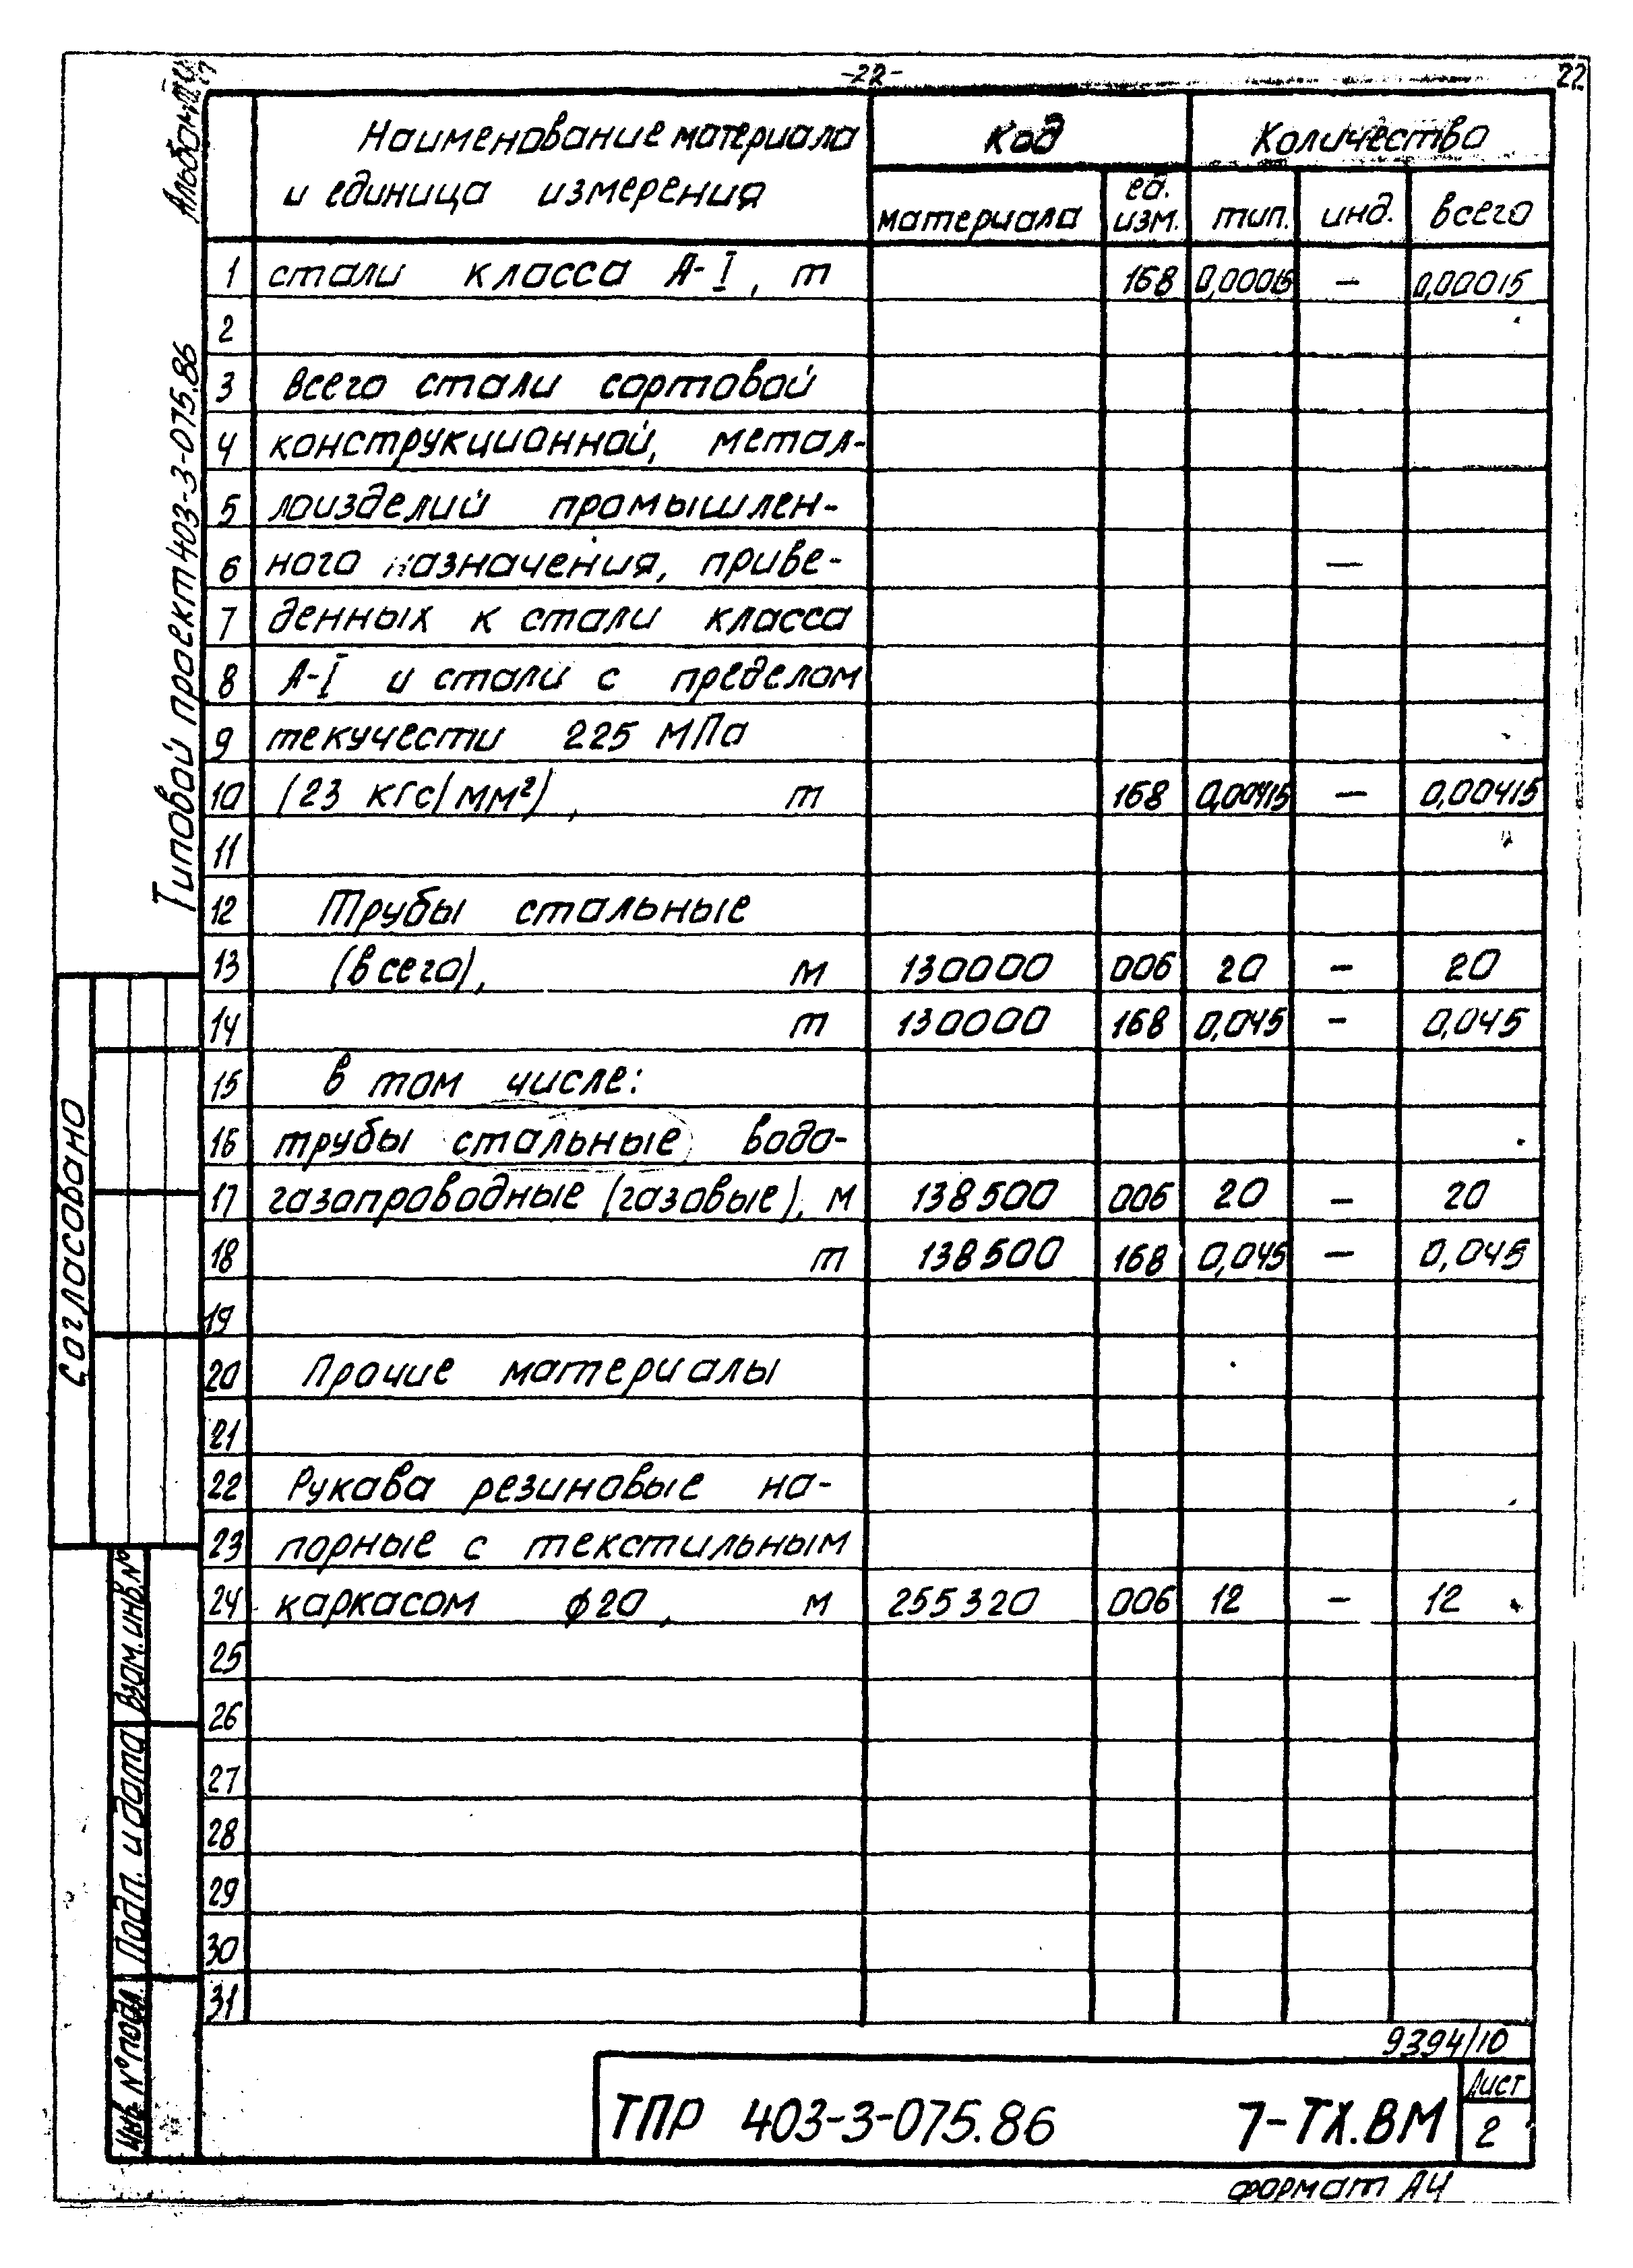 -22-
22
Наименование материала
и единица измерения
Код
Количество
материала
ед. изм.
тип.
инд.
всего
1 стали класса А-I, т 168 0,00015 — 0,00015
2
3 Всего стали сортовой
4 конструкционной, метал-
5 лоизделий промышлен-
6 ного назначения, приве- —
7 денных к стали класса
8 А-I и стали с пределом
9 текучести 225 МПа
10 (23 кгс/мм²), т 168 0,00415 — 0,00415
11
12 Трубы стальные
13 (всего), м 130000 006 20 — 20
14 т 130000 168 0,045 — 0,045
15 В том числе:
16 трубы стальные водо-
17 газопроводные (газовые), м 138500 006 20 — 20
18 т 138500 168 0,045 — 0,045
19
20 Прочие материалы
21
22 Рукава резиновые на-
23 порные с текстильным
24 каркасом ф20, м 255320 006 12 — 12
25
26
27
28
29
30
31
9394/10
ТПР 403-3-075.86 7-ТХ.ВМ
Лист
2
формат А4
Альбом
Типовой проект 403-3-075.86
Согласовано
Взам. инв. №
Подп. и дата
Инв. № подл.